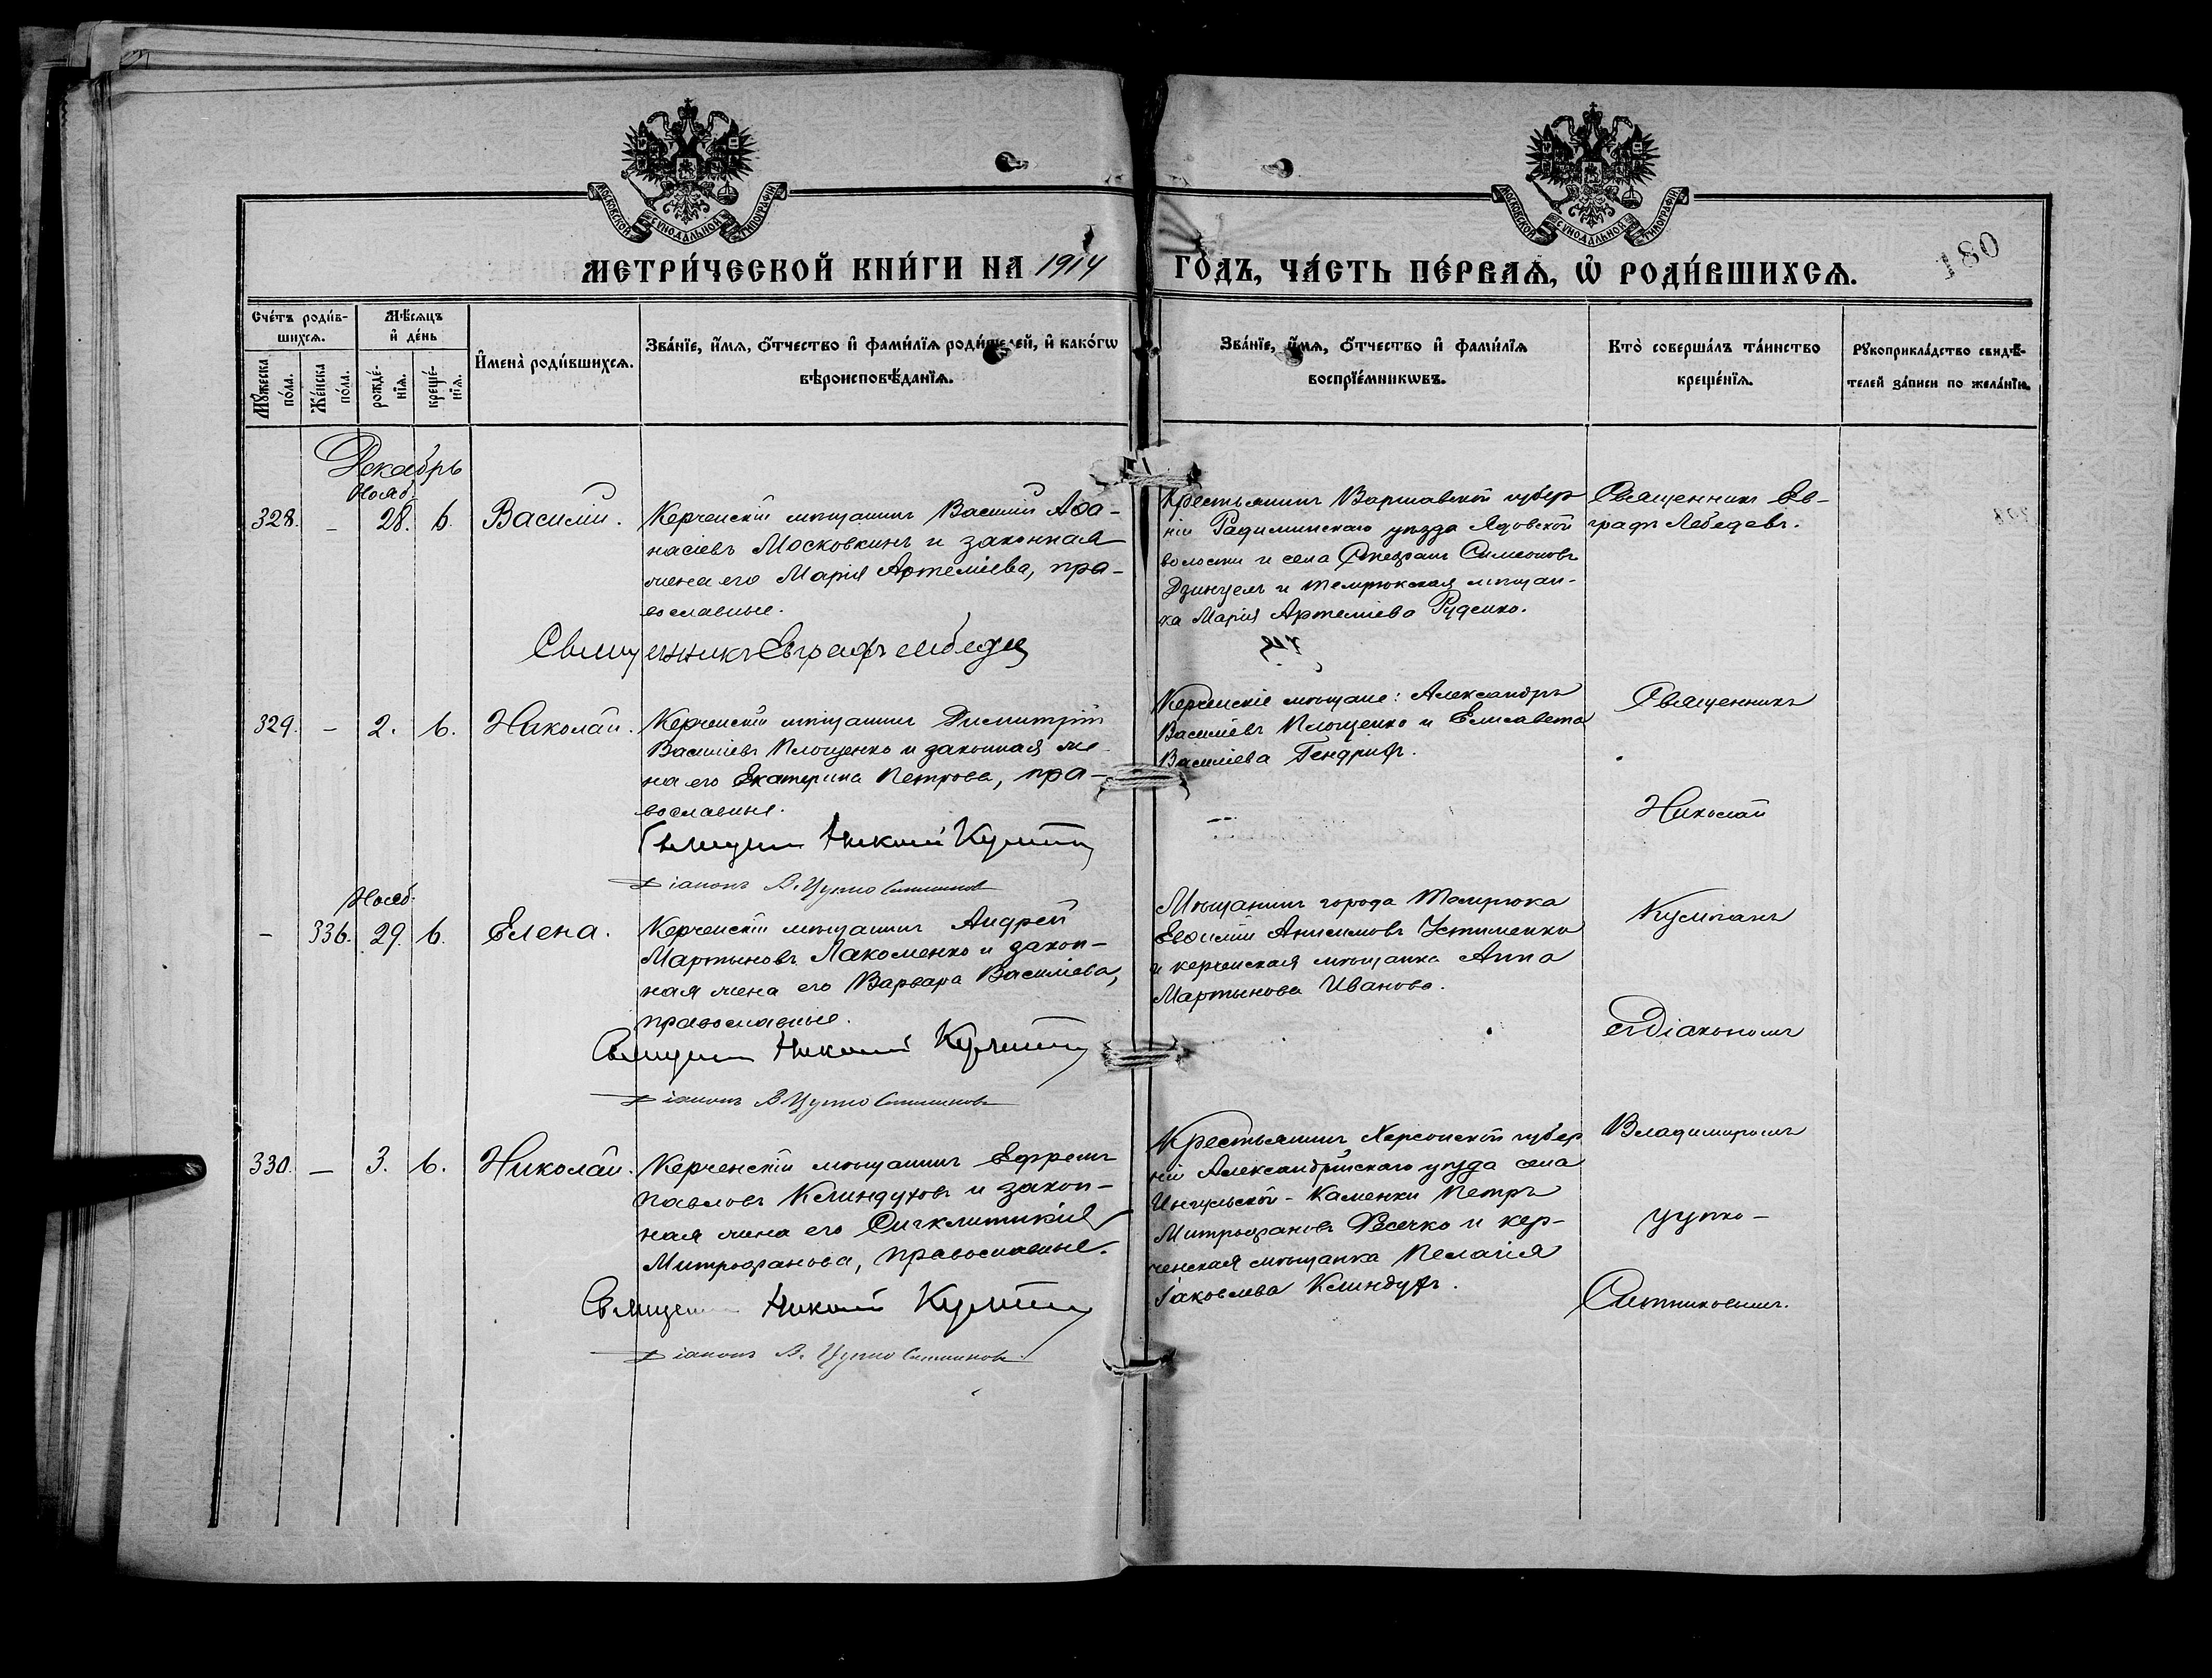 МОСКОВСКОЙ СУНОДАЛЬНОЙ ТИПОГРАФІИ
МОСКОВСКОЙ СУНОДАЛЬНОЙ ТИПОГРАФІИ
МЕТРИ́ЧЕСКОЙ КНИ́ГИ НА 1914 ГО́ДЪ, ЧА́СТЬ ПЕ́РВАѦ, Ѡ РОДИ́ВШИХСѦ.
180
Сче́тъ роди́в-
шихсѧ.
Мѣ́сѧцъ
и҆ де́нь
Мꙋ́жеска
по́ла.
Же́нска
по́ла.
рожде́-
нїѧ.
креще́-
нїѧ.
И҆мена̀ роди́вшихсѧ.
Зва́нїе, и҆́мѧ, ѻ҆́тчество и҆ фами́лїѧ роди́телей, и҆ како́гѡ
вѣроисповѣ́данїѧ.
Зва́нїе, и҆́мѧ, ѻ҆́тчество и҆ фами́лїѧ
воспрїе́мникѡвъ.
Кто̀ соверша́лъ та́инство
креще́нїѧ.
Рꙋкоприкла́дство свидѣ́-
телей за́писи по жела́нїю.
Декабрь
Нояб.
328. – 28. 6. Василій.
Керченскій мѣщанинъ Василій Аѳа-
насіевъ Московкинъ и законная
жена его Марія Артеміева, пра-
вославные.
Священникъ Евграфъ Лебедев
Крестьянинъ Варшавской губер
ніи Радиминскаго уѣзда Ядовской
волости и села Симеоновъ
Дзинцелъ и темрюкская мѣщан-
ка Марія Артеміева Руденко.
Священникъ Ев-
графъ Лебедевъ.
329. – 2. 6. Николай.
Керченскій мѣщанинъ Димитрій
Василіевъ Площенко и законная же-
на его Екатерина Петрова, пра-
вославные.
Священник Николай
Діаконъ В. Цупко Ситников
Керченскіе мѣщане: Александръ
Василіевъ Площенко и Елисавета
Василіева Гендрифъ.
Священникъ
Николай
Нояб.
– 336. 29. 6. Елена.
Керченскій мѣщанинъ Андрей
Мартыновъ Лакоменко и закон-
ная жена его Варвара Василіева,
православные.
Священник Николай
Діаконъ В. Цупко Ситниковъ
Мѣщанинъ города Темрюка
Евѳимій Анисимовъ Устименко
и керченская мѣщанка Анна
Мартынова Иванова.
съ Діакономъ
330. – 3. 6. Николай.
Керченскій мѣщанинъ Ефремъ
Павловъ Клиндуховъ и закон-
ная жена его Сигклитикія
Митрофанова, православные.
Священник Николай
Діаконъ В. Цупко Ситниковъ
Крестьянинъ Херсонской губер
ніи Александрійскаго уѣзда села
Ингульской-Каменки Петръ
Митрофановъ и кер-
ченская мѣщанка Пелагія
Іаковлева Клиндухъ.
Владимиромъ
Цупко-
Ситниковымъ.